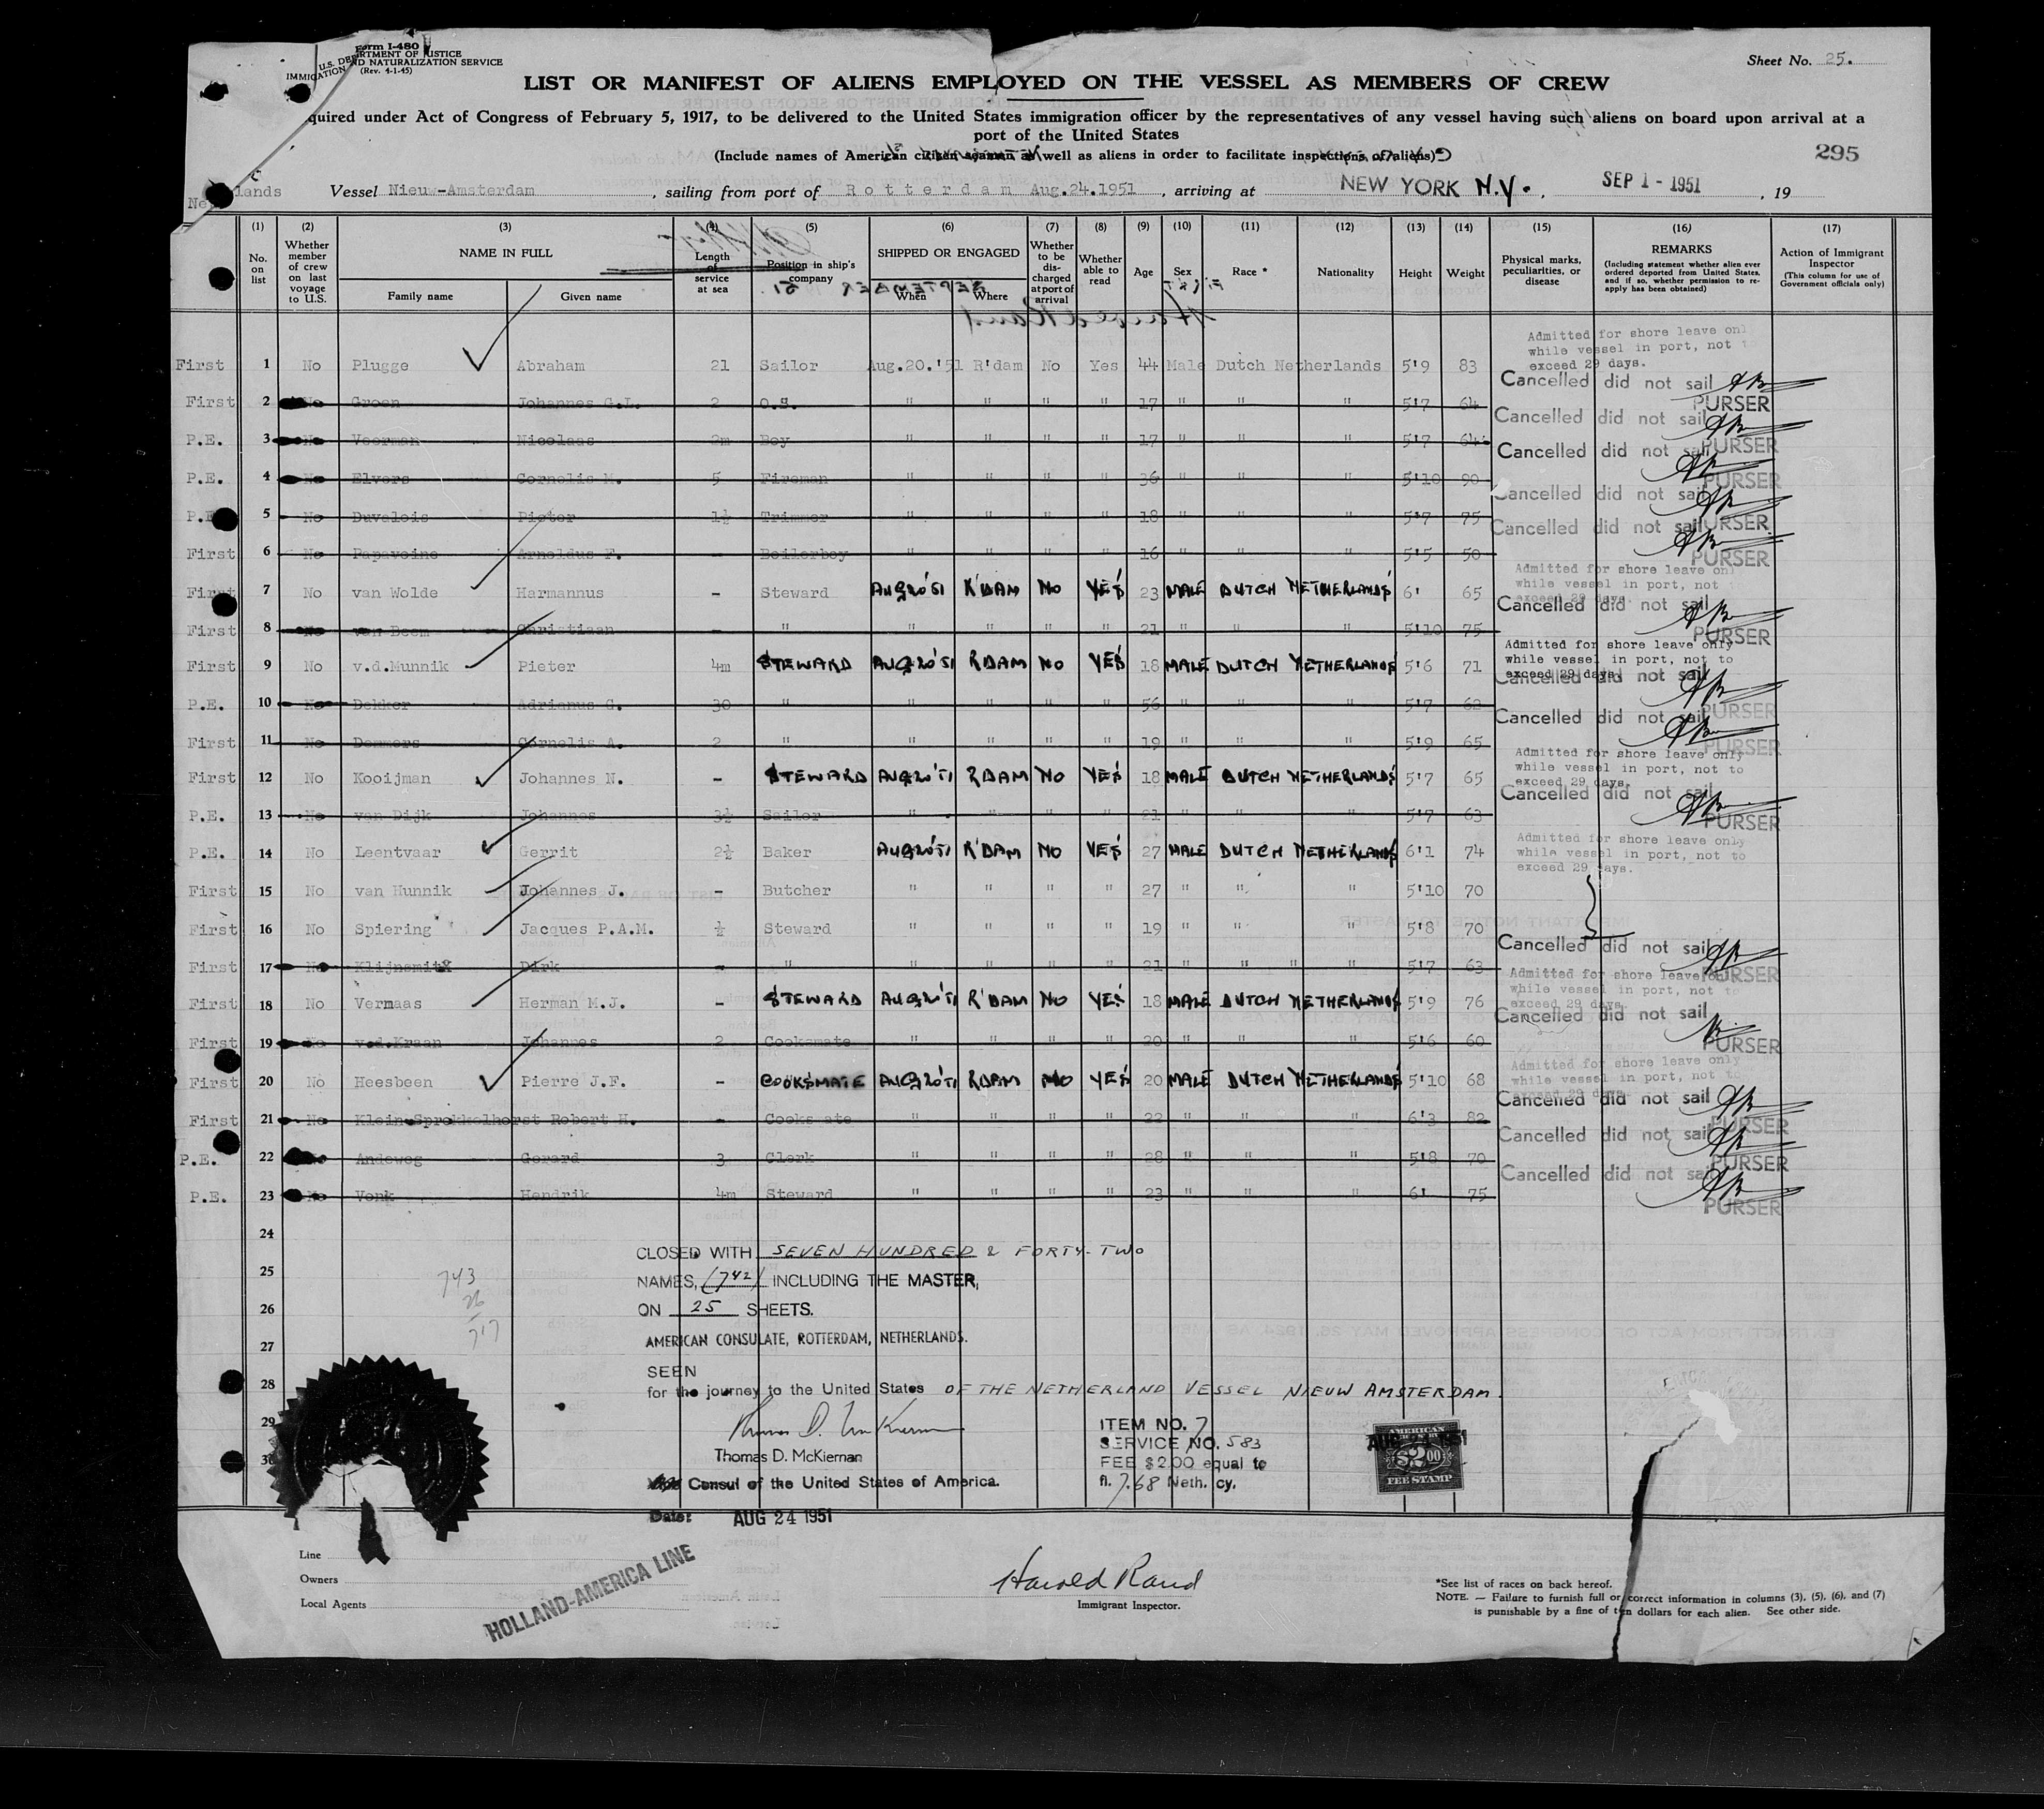 Form I-480
U.S. DEPARTMENT OF JUSTICE
IMMIGRATION AND NATURALIZATION SERVICE
(Rev. 4-1-45)
Sheet No. 25.
LIST OR MANIFEST OF ALIENS EMPLOYED ON THE VESSEL AS MEMBERS OF CREW
quired under Act of Congress of February 5, 1917, to be delivered to the United States immigration officer by the representatives of any vessel having such aliens on board upon arrival at a
port of the United States
(Include names of American citizen seamen as well as aliens in order to facilitate inspections of aliens)
295
Vessel Nieuw-Amsterdam, sailing from port of Rotterdam Aug.24.1951, arriving at NEW YORK N.Y., SEP 1 - 1951, 19
(1) No. on list
(2) Whether member of crew on last voyage to U.S.
(3) NAME IN FULL Family name Given name
(4) Length of service at sea
(5) Position in ship's company
(6) SHIPPED OR ENGAGED When Where
(7) Whether to be discharged at port of arrival
(8) Whether able to read
(9) Age
(10) Sex
(11) Race *
(12) Nationality
(13) Height
(14) Weight
(15) Physical marks, peculiarities, or disease
(16) REMARKS (Including statement whether alien ever ordered deported from United States, and if so, whether permission to reapply has been obtained)
(17) Action of Immigrant Inspector (This column for use of Government officials only)
First 1 No Plugge Abraham 21 Sailor Aug.20.'51 R'dam No Yes 44 Male Dutch Netherlands 5'9 83 Admitted for shore leave only while vessel in port, not to exceed 29 days.
First 2 No Groen Johannes G.L. 2 O.S. " " " " 17 " " " 5'7 64 Cancelled did not sail PURSER
P.E. 3 No Voorman Nicolaas 2m Boy " " " " 17 " " " 5'7 64 Cancelled did not sail PURSER
P.E. 4 No Elvers Cornelis M. 5 Fireman " " " " 36 " " " 5'10 90 Cancelled did not sail PURSER
P.E. 5 No Duvalois Pieter 1½ Trimmer " " " " 18 " " " 5'7 75 Cancelled did not sail PURSER
First 6 No Papavoine Arnoldus F. - Boilerboy " " " " 16 " " " 5'5 50 Cancelled did not sail PURSER
First 7 No van Wolde Harmannus - Steward AUG 20 '51 R'DAM NO YES 23 MALE DUTCH NETHERLANDS 6' 65 Admitted for shore leave only while vessel in port, not to exceed 29 days.
First 8 No van Deem Christiaan - " " " " " 21 " " " 5'10 75 Cancelled did not sail PURSER
First 9 No v.d.Munnik Pieter 4m STEWARD AUG 20 '51 R'DAM NO YES 18 MALE DUTCH NETHERLANDS 5'6 71 Admitted for shore leave only while vessel in port, not to exceed 29 days.
P.E. 10 No Dekker Adrianus G. 30 " " " " " 56 " " " 5'7 62 Cancelled did not sail PURSER
First 11 No Demmers Cornelis A. 2 " " " " " 19 " " " 5'9 65 Cancelled did not sail PURSER
First 12 No Kooijman Johannes N. - STEWARD AUG 20 '51 R'DAM NO YES 18 MALE DUTCH NETHERLANDS 5'7 65 Admitted for shore leave only while vessel in port, not to exceed 29 days.
P.E. 13 No van Dijk Johannes 3½ Sailor " " " " 21 " " " 5'7 63 Cancelled did not sail PURSER
P.E. 14 No Leentvaar Gerrit 2½ Baker AUG 20 '51 R'DAM NO YES 27 MALE DUTCH NETHERLANDS 6'1 74 Admitted for shore leave only while vessel in port, not to exceed 29 days.
First 15 No van Hunnik Johannes J. - Butcher " " " " 27 " " " 5'10 70
First 16 No Spiering Jacques P.A.M. ½ Steward " " " " 19 " " " 5'8 70
First 17 No Klijnsmit Dirk - " " " " " 21 " " " 5'7 63 Cancelled did not sail PURSER
First 18 No Vermaas Herman M.J. - STEWARD AUG 20 '51 R'DAM NO YES 18 MALE DUTCH NETHERLANDS 5'9 76 Admitted for shore leave only while vessel in port, not to exceed 29 days.
First 19 No v.d.Kraan Johannes 2 Cooksmate " " " " 20 " " " 5'6 60 Cancelled did not sail PURSER
First 20 No Heesbeen Pierre J.F. - COOKSMATE AUG 20 '51 R'DAM NO YES 20 MALE DUTCH NETHERLANDS 5'10 68 Admitted for shore leave only while vessel in port, not to exceed 29 days.
First 21 No Klein Sprokkelhorst Robert H. - Cooks ate " " " " 22 " " " 6'3 82 Cancelled did not sail PURSER
P.E. 22 No Andeweg Gerard 3 Clerk " " " " 28 " " " 5'8 70 Cancelled did not sail PURSER
P.E. 23 No Vonk Hendrik 4m Steward " " " " 23 " " " 6' 75 Cancelled did not sail PURSER
24
CLOSED WITH SEVEN HUNDRED & FORTY-TWO
25
743
NAMES, (742) INCLUDING THE MASTER,
26
26
ON 25 SHEETS.
717
27
AMERICAN CONSULATE, ROTTERDAM, NETHERLANDS.
SEEN
28
for the journey to the United States OF THE NETHERLAND VESSEL NIEUW AMSTERDAM.
29
ITEM NO. 7
SERVICE NO. 583
Thomas D. McKiernan
FEE $2.00 equal to
30
Consul of the United States of America.
fl. 7.68 Neth. cy.
AMERICAN
$2.00
FEE STAMP
Date: AUG 24 1951
Line
Owners
Local Agents
HOLLAND-AMERICA LINE
Harold Rand
Immigrant Inspector.
*See list of races on back hereof.
NOTE. — Failure to furnish full or correct information in columns (3), (5), (6), and (7)
is punishable by a fine of ten dollars for each alien. See other side.